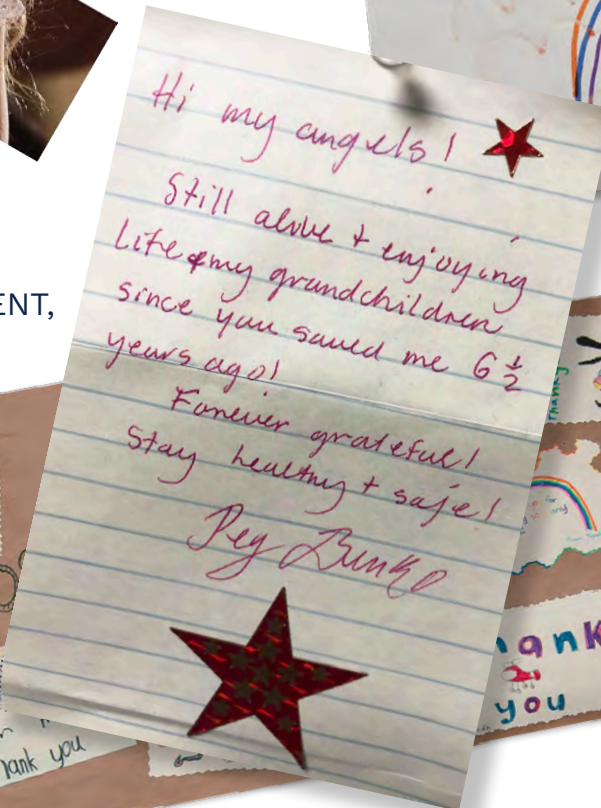 Hi my angels!
Still alive + enjoying
Life & my grandchildren
since you saved me 6 1/2
years ago!
Forever grateful!
Stay healthy + safe!
Peg Bunko
ENT,
thanks
hank
you
hank you